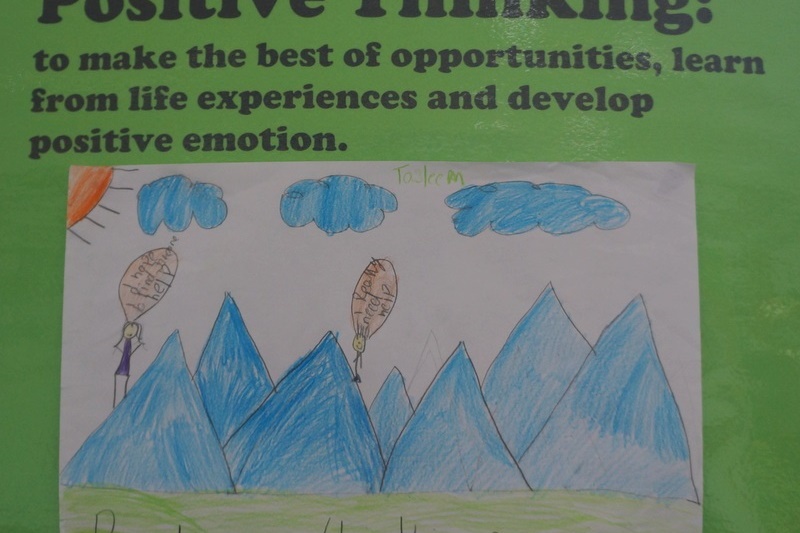 Positive Thinking:
to make the best of opportunities, learn
from life experiences and develop
positive emotion.
Tasleem
I hope
I find some
help
I really
need
help